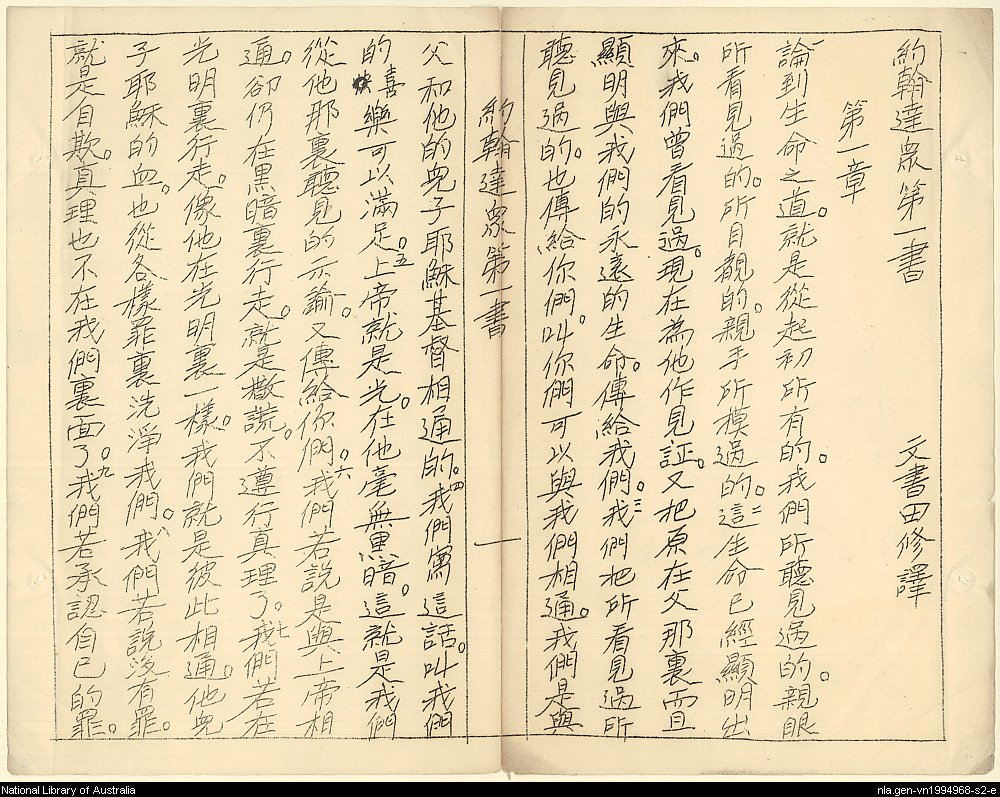 約翰達眾第一書
第一章
文書田修譯
一論到生命之道。就是從起初所有的。我們所聽見過的。親眼
所看見過的。所目覩的。親手所模過的。二這生命已經顯明出
來。我們曾看見過。現在為他作見証。又把原在父那裏而且
顯明與我們的永遠的生命。傳給我們。三我們把所看見過所
聽見過的。也傳給你們。叫你們可以與我們相通。我們是與
約翰達眾第一書
一
父和他的兒子耶穌基督相通的。四我們寫這話。叫我們
的喜樂可以滿足。五上帝就是光。在他毫無黑暗。這就是我們
從他那裏聽見的示諭。又傳給你們。六我們若說是與上帝相
通。卻仍在黑暗裏行走。就是撒謊。不遵行真理了。七我們若在
光明裏行走。像他在光明裏一樣。我們就是彼此相通。他兒
子耶穌的血。也從各樣罪裏洗淨我們。八我們若說沒有罪。
就是自欺。真理也不在我們裏面了。九我們若承認自己的罪。
National Library of Australia
nla.gen-vn1994968-s2-e